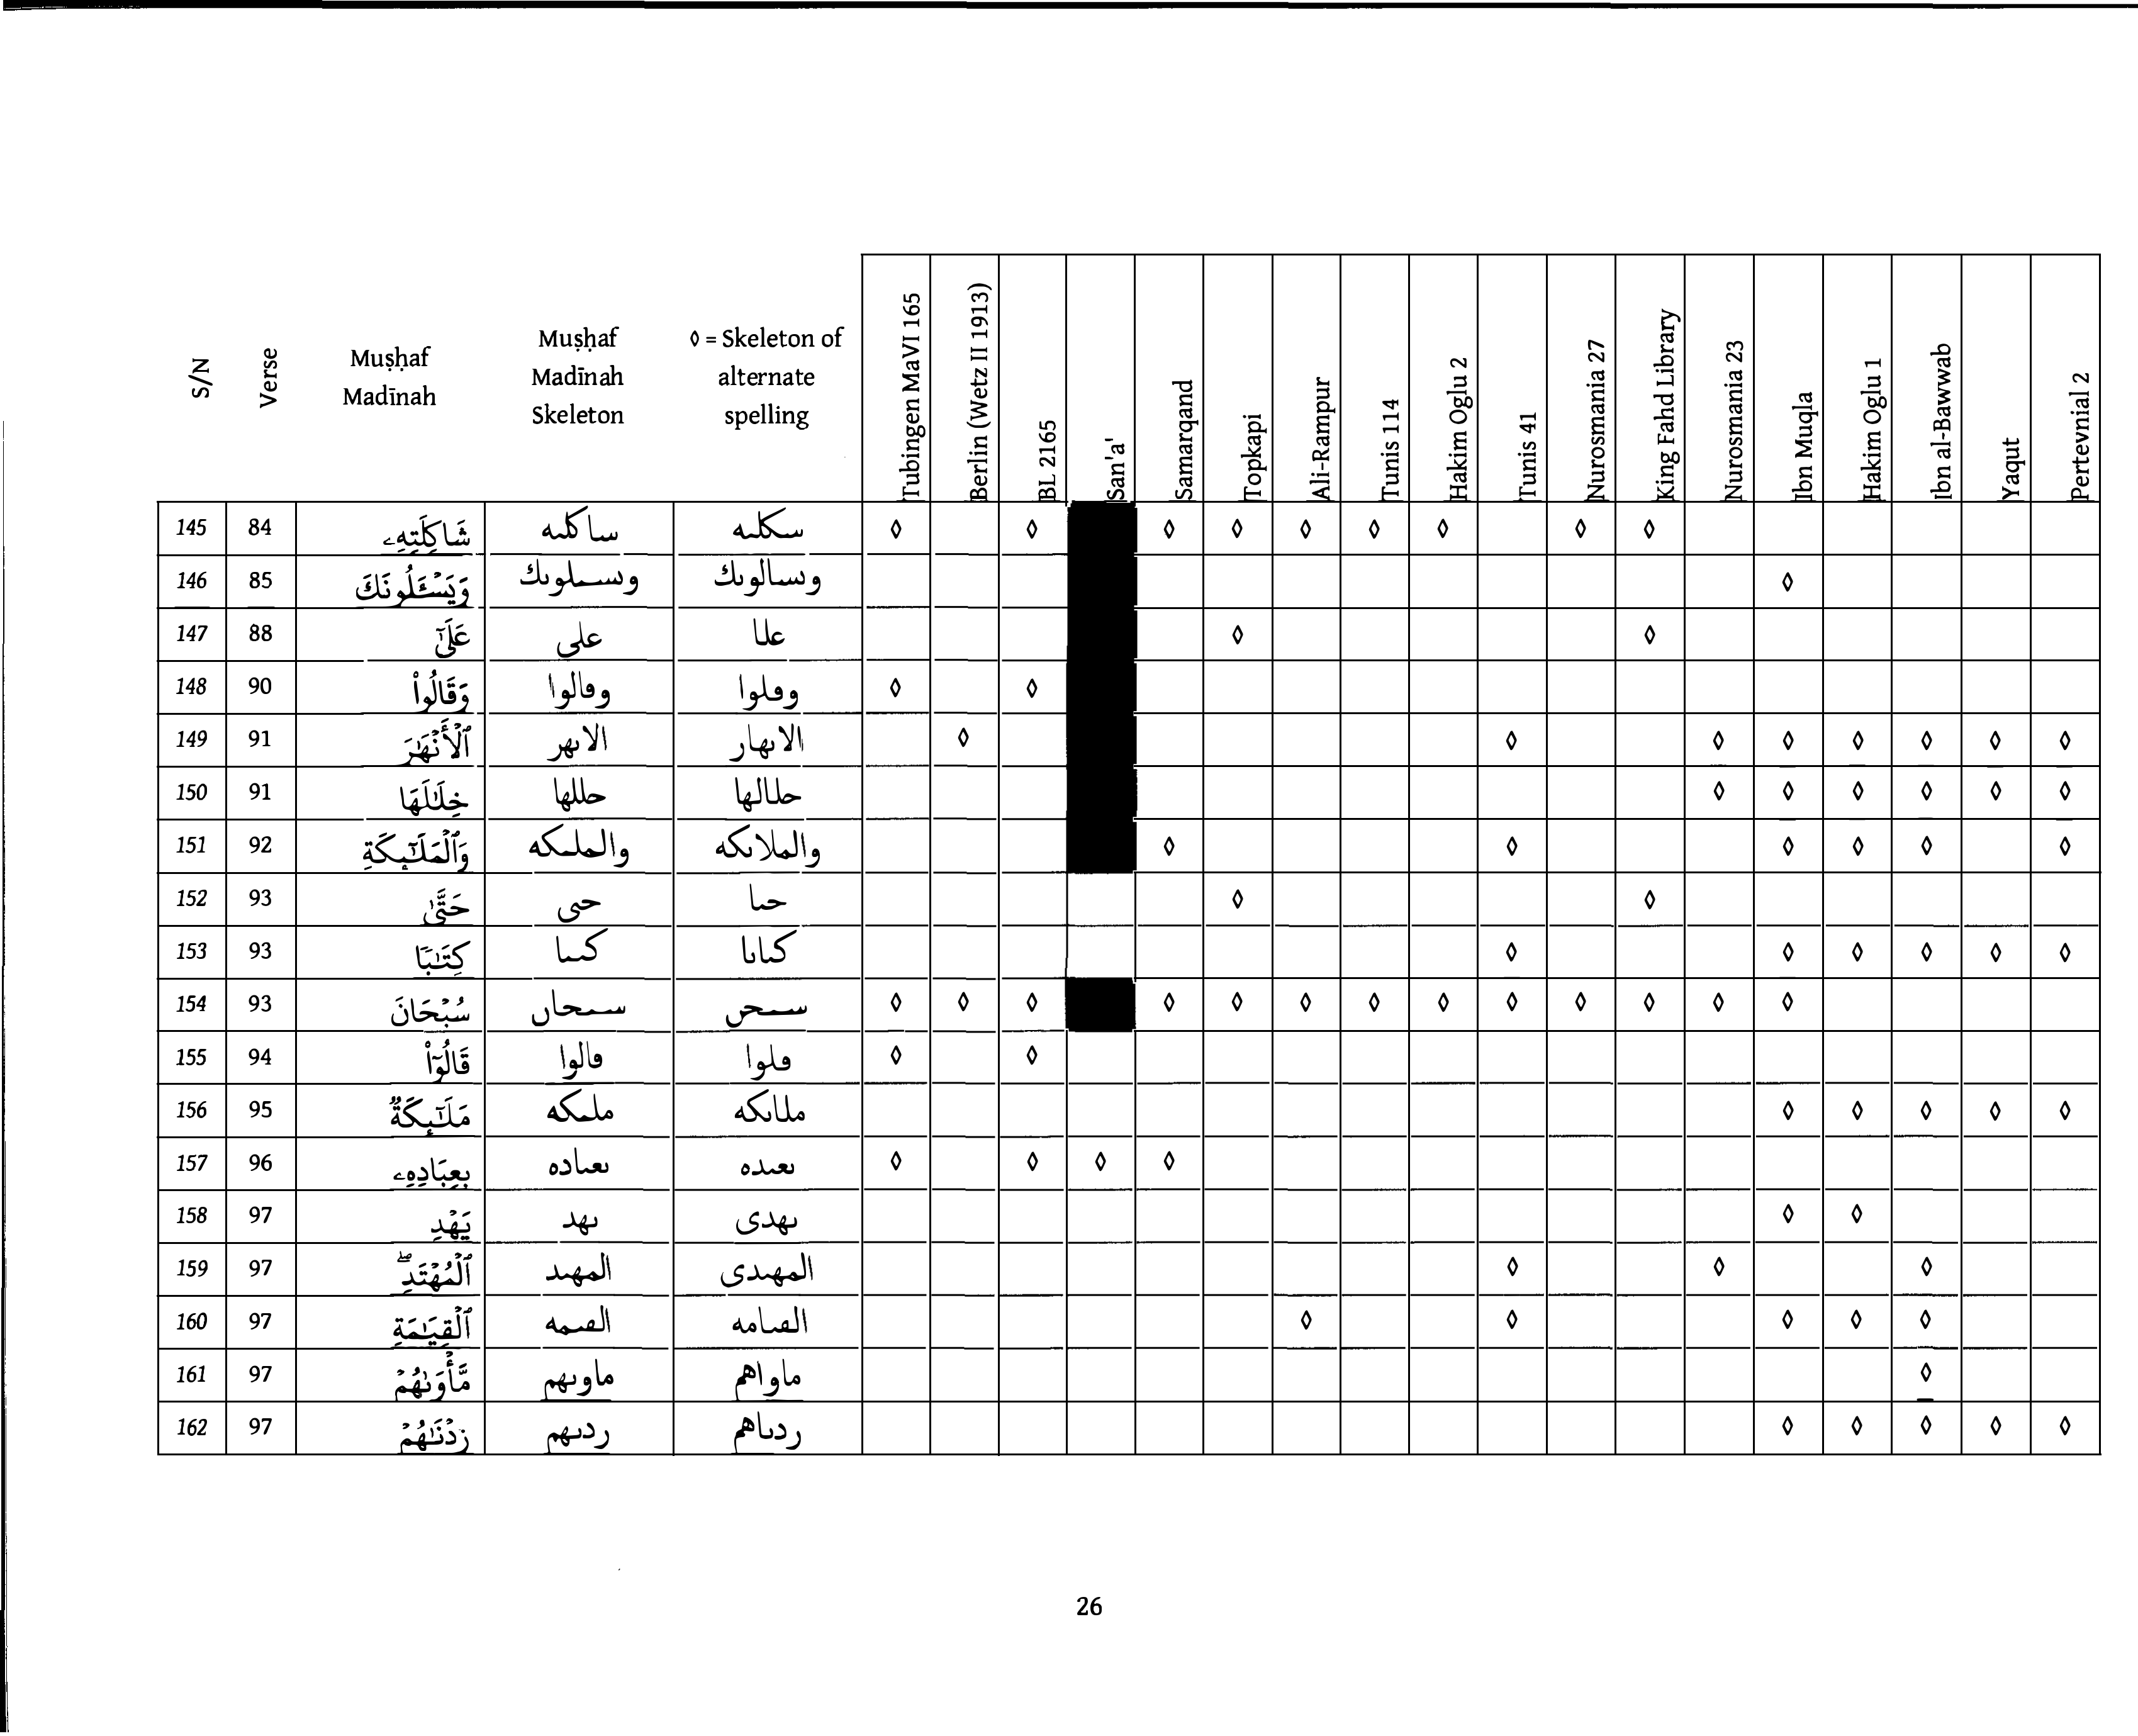 S/N Verse Muṣḥaf Madīnah Muṣḥaf Madīnah Skeleton ◊ = Skeleton of alternate spelling Tubingen MaVI 165 Berlin (Wetz II 1913) BL 2165 San'a' Samarqand Topkapi Ali-Rampur Tunis 114 Hakim Oglu 2 Tunis 41 Nurosmania 27 King Fahd Library Nurosmania 23 Ibn Muqla Hakim Oglu 1 Ibn al-Bawwab Yaqut Pertevnial 2
145 84 شَاكِلَتِهِۦ ساكلىه سكلىه ◊ ◊ ◊ ◊ ◊ ◊ ◊ ◊ ◊
146 85 وَيَسْـَٔلُونَكَ وىسـىلوىك وىسالوىك ◊
147 88 عَلَىٰٓ على علا ◊ ◊
148 90 وَقَالُوا۟ وڡالوا وڡلوا ◊ ◊
149 91 ٱلْأَنْهَٰرَ الاىهر الاىهار ◊ ◊ ◊ ◊ ◊ ◊ ◊ ◊
150 91 خِلَٰلَهَا حللها حلالها ◊ ◊ ◊ ◊ ◊ ◊
151 92 وَٱلْمَلَٰٓئِكَةِ والملىكه والملاىكه ◊ ◊ ◊ ◊ ◊ ◊
152 93 حَتَّىٰ حى حىا ◊ ◊
153 93 كِتَٰبًا كىىا كىاىا ◊ ◊ ◊ ◊ ◊ ◊
154 93 سُبْحَانَ سىحاں سىحں ◊ ◊ ◊ ◊ ◊ ◊ ◊ ◊ ◊ ◊ ◊ ◊ ◊
155 94 قَالُوٓا۟ ڡالوا ڡلوا ◊ ◊
156 95 مَلَٰٓئِكَةٌ ملىكه ملاىكه ◊ ◊ ◊ ◊ ◊
157 96 بِعِبَادِهِۦ ىعىاده ىعىده ◊ ◊ ◊ ◊
158 97 يَهْدِ ىهد ىهدى ◊ ◊
159 97 ٱلْمُهْتَدِ ۖ المهىد المهىدى ◊ ◊ ◊
160 97 ٱلْقِيَٰمَةِ الڡىمه الڡىامه ◊ ◊ ◊ ◊ ◊
161 97 مَّأْوَىٰهُمْ ماوىهم ماواهم ◊
162 97 زِدْنَٰهُمْ ردىهم ردىاهم ◊ ◊ ◊ ◊ ◊
26